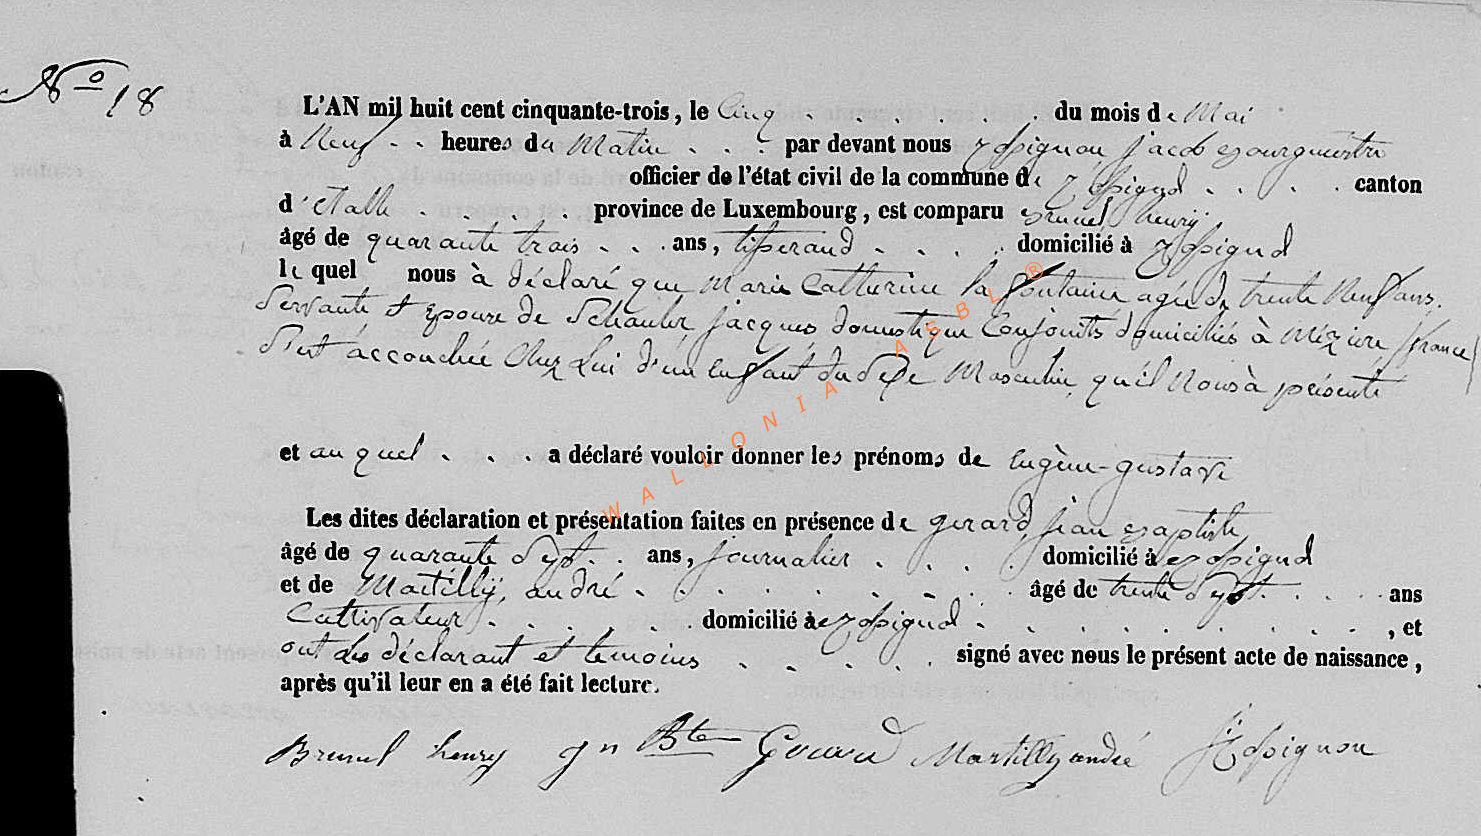 No 18
L'AN mil huit cent cinquante-trois, le Cinq . . . . du mois de Mai
à Neuf . . heures du Matin . . . par devant nous Rossignon jacob Bourguemstre
officier de l'état civil de la commune de Rossignol . . . . canton
d'étalle . . . . province de Luxembourg, est comparu Brunel henrÿ
âgé de quarante trois . . . ans, tisserand . . . . domicilié à Rossignol
le quel nous à déclaré que Marie Catherine la fontaine agée de trente Neuf ans.
Servante et Epouse de jacques, domestique Conjoints domiciliés à Mézière /france/
S'est accouchée Chez Lui d'un Enfant du Sexe Masculin, qu'il Nous à présenté
et au quel . . . . a déclaré vouloir donner les prénoms de Eugène-gustave
Les dites déclaration et présentation faites en présence de gerard, jean Baptiste
âgé de quarante Sept . . ans, journalier . . . . domicilié à Rossignol
et de Martillÿ, andré . . . . . . . . . âgé de trente Sept . . . . ans
Cultivateur . . . . . . domicilié à Rossignol . . . . . . . . . , et
ont les déclarant et temoins . . . . . signé avec nous le présent acte de naissance,
après qu'il leur en a été fait lecture.
Brunel henry jn Bte Gerard Martilly andré J Rossignon
WALLONIA ASBL ®